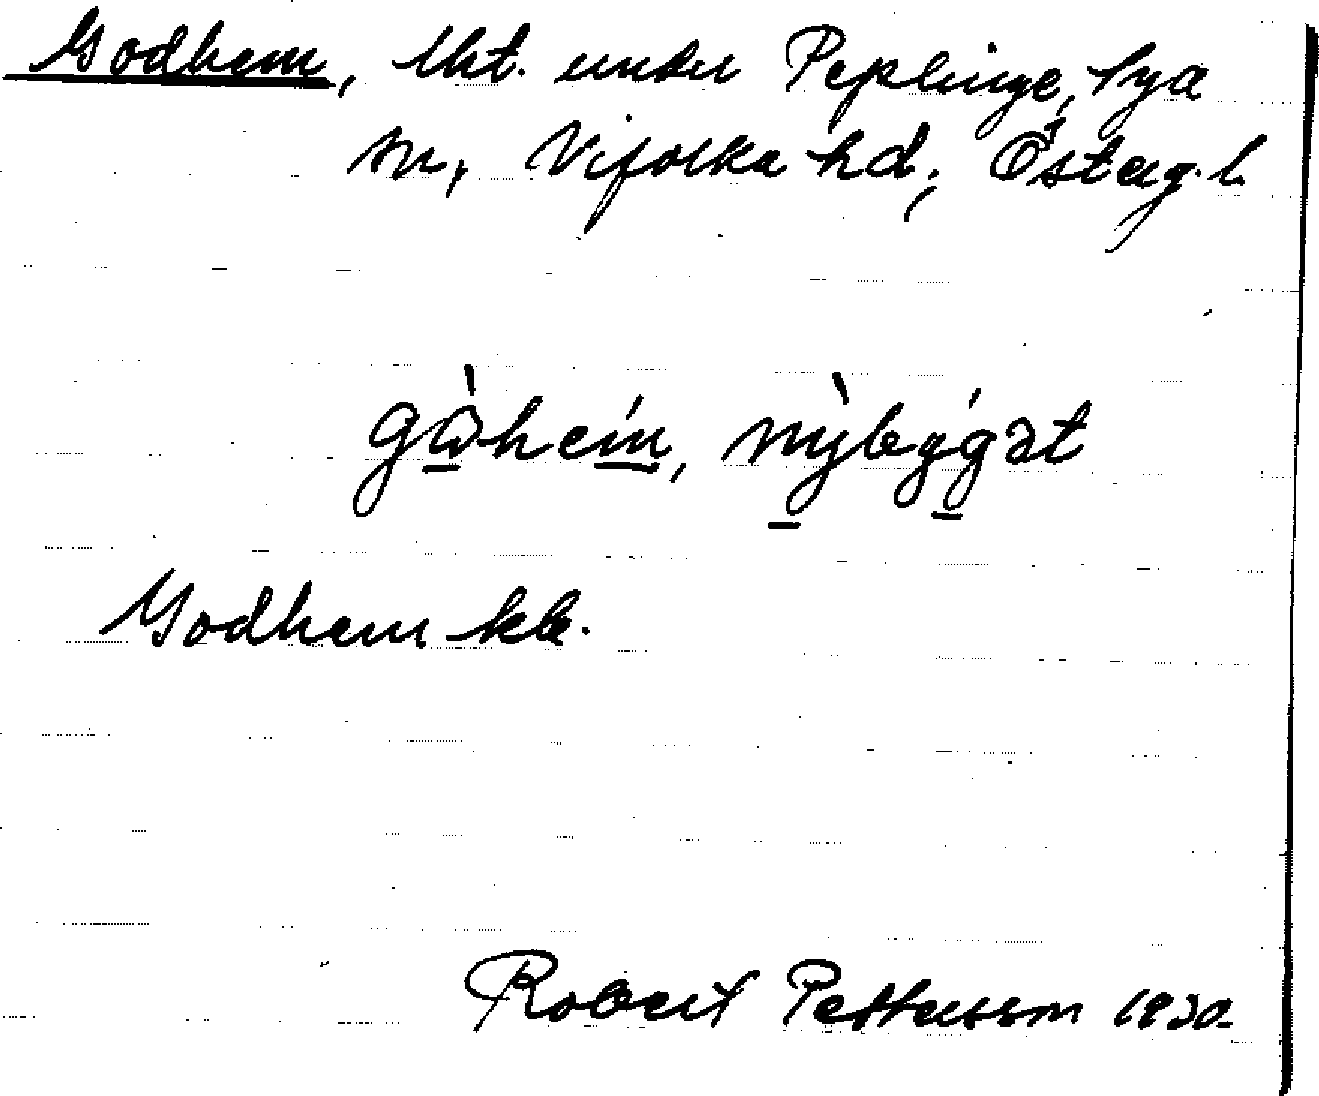 Godhem, lht. under Peplinge, Lya
sn, Vifolka hd, Österg. l.
gåhem, nỳbygget
Godhem kb.
Robert Pettersson 1930